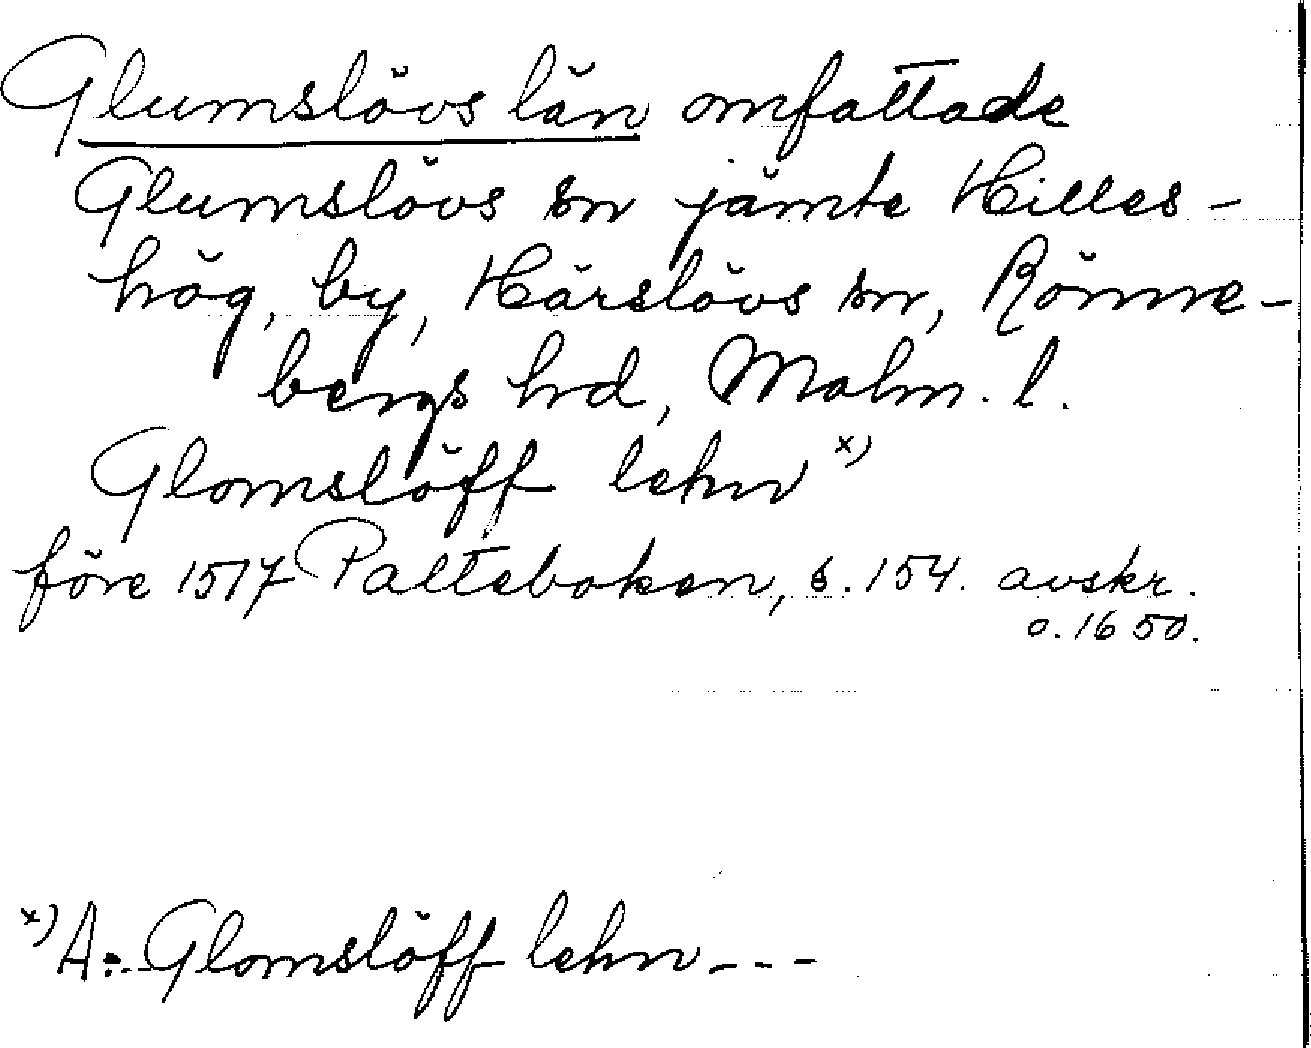 Glumslövs län omfattade
Glumslövs sn jämte Hilles-
hög, by, Härslövs sn, Rönne-
bergs hd, Malm. l.
Glomslöff lehn x)
före 1517 Palteboken, s. 154. avskr.
o. 1650.
x) A: Glomslöff lehn - - -